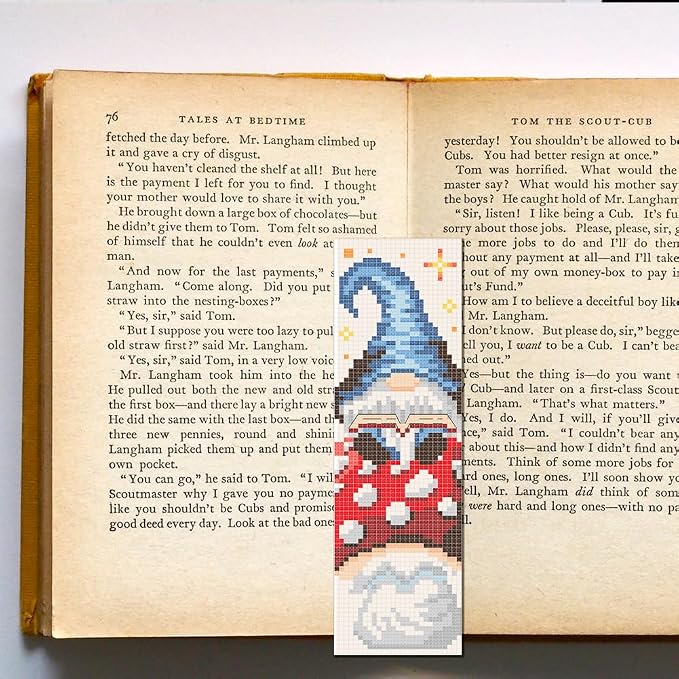 76 TALES AT BEDTIME
fetched the day before. Mr. Langham climbed up
it and gave a cry of disgust.
“You haven't cleaned the shelf at all! But here
is the payment I left for you to find. I thought
your mother would love to share it with you.”
He brought down a large box of chocolates—but
he didn't give them to Tom. Tom felt so ashamed
of himself that he couldn't even look at
man.
“And now for the last payments,”
Langham. “Come along. Did you put
straw into the nesting-boxes?”
“Yes, sir,” said Tom.
“But I suppose you were too lazy to pul
old straw first?” said Mr. Langham.
“Yes, sir,” said Tom, in a very low voic
Mr. Langham took him into the he
He pulled out both the new and old stra
the first box—and there lay a bright new s
He did the same with the last box—and th
three new pennies, round and shini
Langham picked them up and put them
own pocket.
“You can go,” he said to Tom. “I wil
Scoutmaster why I gave you no payme
like you shouldn't be Cubs and promise
good deed every day. Look at the bad one
TOM THE SCOUT-CUB
yesterday! You shouldn't be allowed to be
Cubs. You had better resign at once.”
Tom was horrified. What would the
master say? What would his mother say
the boys? He caught hold of Mr. Langham
“Sir, listen! I like being a Cub. It's fu
sorry about those jobs. Please, please, sir, g
e more jobs to do and I'll do them
ithout any payment at all—and I'll take
y out of my own money-box to pay in
ut's Fund.”
How am I to believe a deceitful boy like
Mr. Langham.
I don't know. But please do, sir,” begge
ell you, I want to be a Cub. I can't bea
ned out.”
Yes—but the thing is—do you want
Cub—and later on a first-class Scout
Langham. “That's what matters.”
Yes, I do. And I will, if you'll give
nce,” said Tom. “I couldn't bear any
about this—and I didn't find any
ments. Think of some more jobs for
ard ones, long ones. I'll soon show yo
ell, Mr. Langham did think of som
were hard and long ones—with no pa
ll.